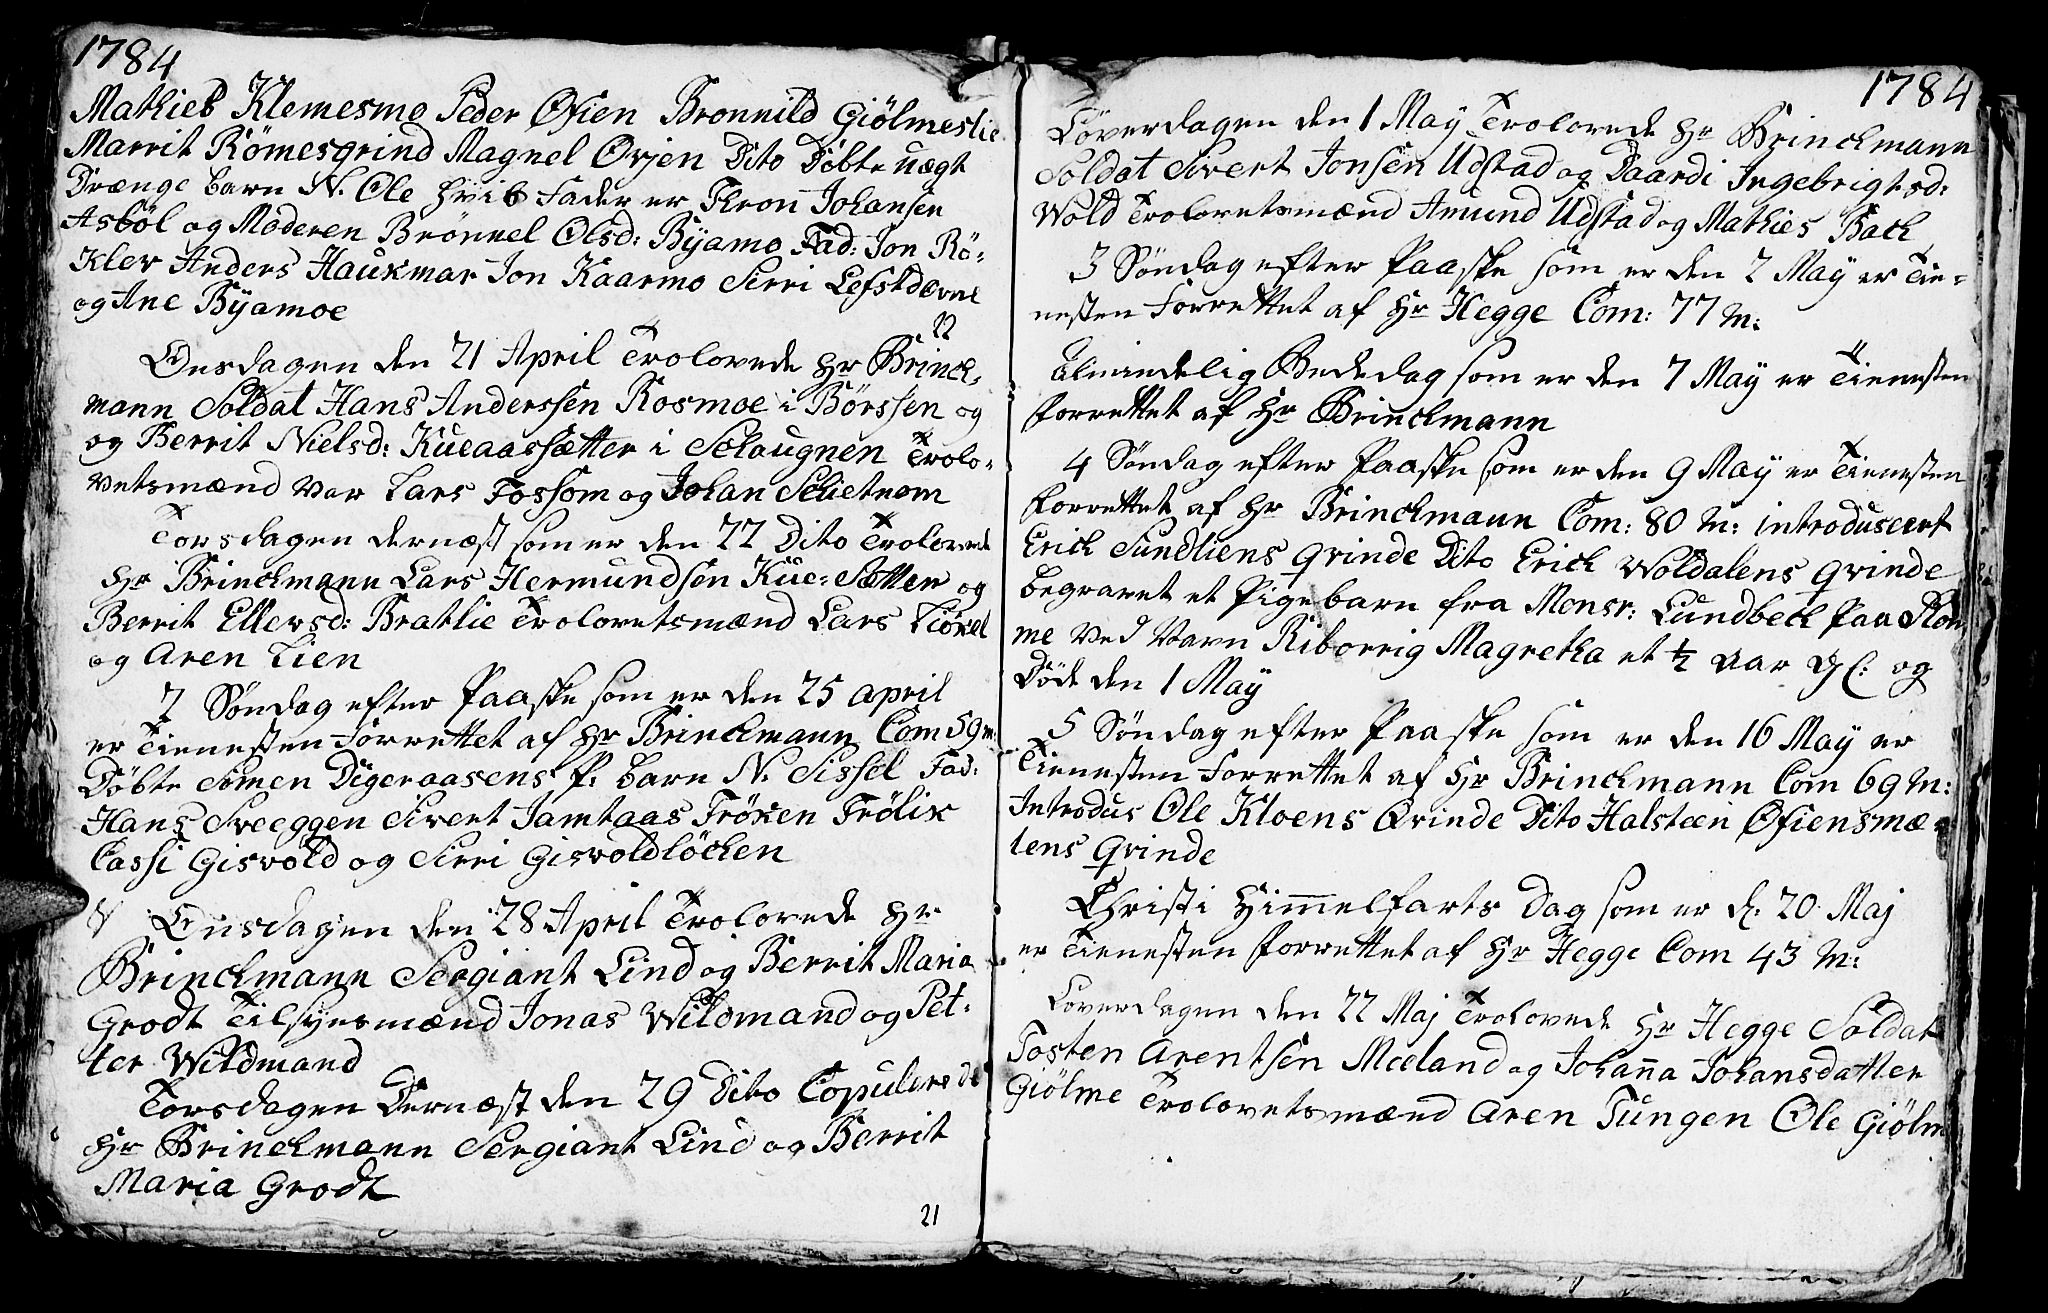 1784
Mathies Klemesmo Peder Øfien Bronnild Giölmeslie
Marrit Römesgrind Magnel Ovjen Dito Döbte uægt
Drænge barn N. Ole hvis Fader er Thron Johansen
Asböl og Moderen Brönnel Olsd: Byamo Fad: Jon Rö-
Klev Anders Haukmar Jon Kaarmo Sirri
og Ane Byamoe
Onsdagen den 21 April Trolovede Hr Brinck-
mann Soldat Hans Anderssen Rosmoe i Börssen og
og Berrit Nielsd: Kueaassætter i Schaugnen Trolo-
vetsmænd var Lars Fossom og Johan Schetnem
Torsdagen dernæst som er den 22 Dito Trolovede
Hr Brinckmann Lars Hermundsen Kue-Sætter og
Berrit Ellevsd: Bratlie Trolovetsmænd Lars
og Aren Lien
2 Söndag efter Paaske som er den 25 april
er Tienesten Forrettet af Hr Brinckmann Com 59 m:
Döbte Simen Digeraasens P. barn N. Sissel Fad:
Hans Sveeggen Sivert Jamtaas Fröken Frölik
Cassi Gisvold og Sirri Gisvoldlöcken
Onsdagen den 28 April Trolovede Hr
Brinckmann Sergiant Lind og Berrit Maria
Grodt Tilsynsmænd Jonas Wildmand og Pet-
ter Wildmand
Torsdagen Dernæst den 29 Dito Copulerede
Hr Brinckmann Sergiant Lind og Berrit
Maria Grodt
21
1784
Löverdagen den 1 May Trolovede Hr Brinckmann
Soldat Sivert Jonsen Udstad og Baardi Ingebrigtsd:
Wold Trolovetsmænd Amund Udstad og Mathies Back
3 Söndag efter Paaske som er den 2 May er Tie-
nesten Forrettet af Hr Hegge Com: 77 M:
Almindelig Bededag som er den 7 May er Tienesten
forrettet af Hr Brinckmann
4 Söndag efter Paaske som er den 9 May er Tienesten
forrettet af Hr Brinckmann Com: 80 M: introduseert
Erick Sundliens Qvinde Dito Erick Woldalens Qvinde
begravet et Pigebarn fra Monsr: Lundbeck paa Rom-
me ved Navn Riborrig Magretha et ½ aar gl: og
Döde den 1 May
5 Söndag efter Paaske som er den 16 May er
Tienesten Forrettet af Hr Brinckmann Com 69 M:
Introdus Ole Kloens Qvinde Dito Halsteen Øfiensmæ-
lens Qvinde
Christi Himmelfarts Dag som er d. 20 Maj
er Tienesten forrettet af Hr Hegge Com 43 M:
Loverdagen den 22 Maj Trolovede Hr Hegge Soldat
Tosten Arentsen Meeland og Johanna Johansdatter
Giölme Trolovetsmænd Aren Tungen Ole Giölm